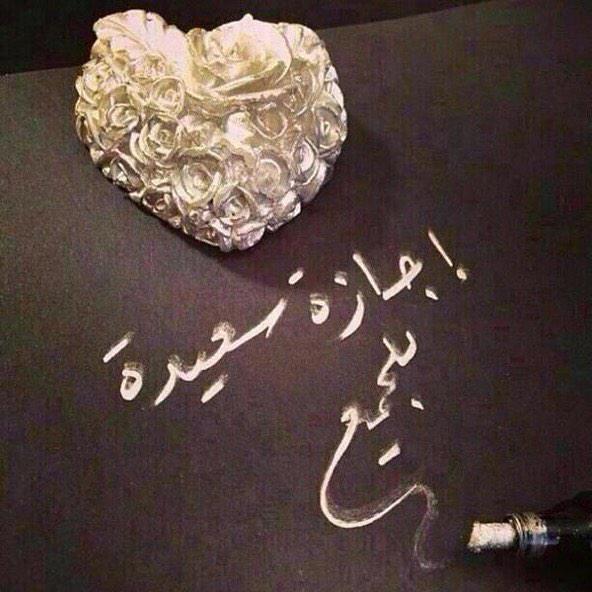 اجازة سعيدة
للجميع